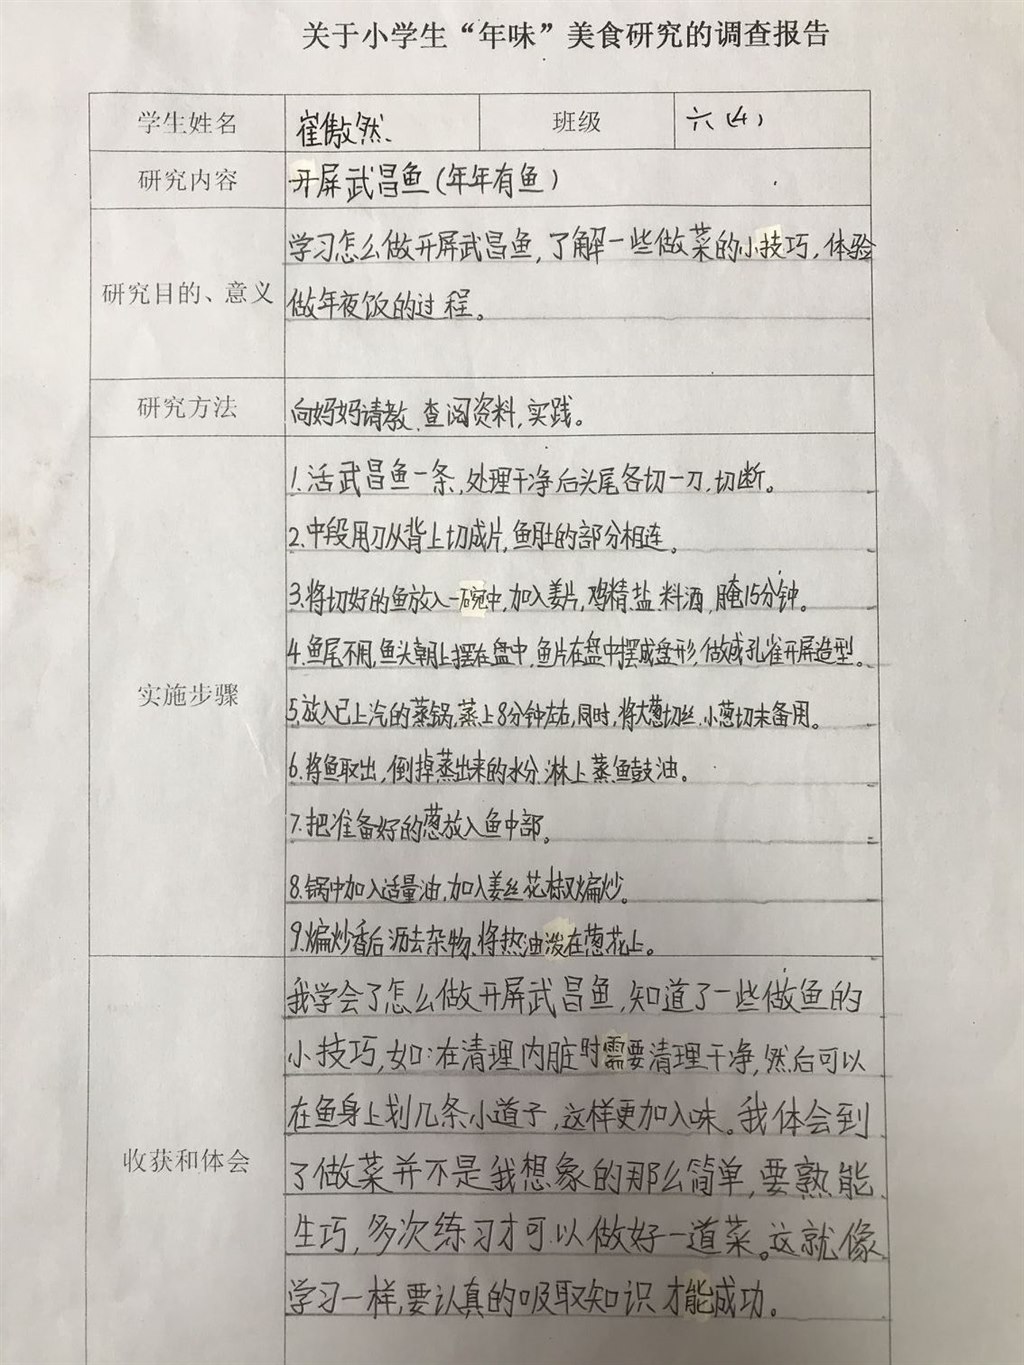 关于小学生“年味”美食研究的调查报告
学生姓名 崔傲然 班级 六(4)
研究内容 开屏武昌鱼(年年有鱼)
学习怎么做开屏武昌鱼,了解一些做菜的小技巧,体验
研究目的、意义
做年夜饭的过程。
研究方法 向妈妈请教、查阅资料,实践。
1.活武昌鱼一条,处理干净后头尾各切一刀,切断。
2.中段用刀从背上切成片,鱼肚的部分相连。
3.将切好的鱼放入一碗中,加入姜片,鸡精、盐、料酒,腌15分钟。
4.鱼尾不用,鱼头朝上摆在盘中,鱼片在盘中摆成盘形,做成孔雀开屏造型。
实施步骤
5.放入已上汽的蒸锅,蒸上8分钟左右,同时,将大葱切丝、小葱切末备用。
6.将鱼取出,倒掉蒸出来的水分,淋上蒸鱼鼓油。
7.把准备好的葱放入鱼中部。
8.锅中加入适量油,加入姜丝、花椒煸炒。
9.煸炒香后沥去杂物,将热油泼在葱花上。
我学会了怎么做开屏武昌鱼,知道了一些做鱼的
小技巧,如:在清理内脏时需要清理干净,然后可以
在鱼身上划几条小道子,这样更加入味。我体会到
收获和体会
了做菜并不是我想象的那么简单,要熟能
生巧,多次练习才可以做好一道菜。这就像
学习一样,要认真的吸取知识才能成功。